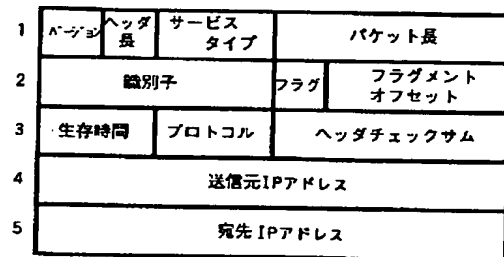 1 バージョン ヘッダ長 サービスタイプ パケット長
2 識別子 フラグ フラグメントオフセット
3 生存時間 プロトコル ヘッダチェックサム
4 送信元IPアドレス
5 宛先IPアドレス